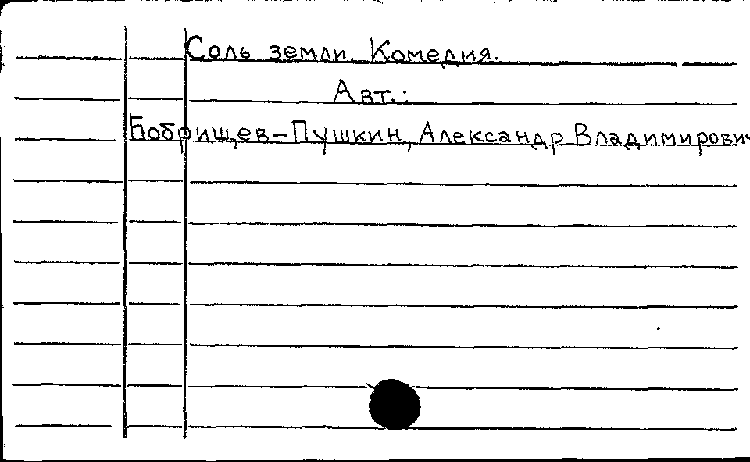 Соль земли. Комедия.
Авт.:
Бобрищев-Пушкин, Александр Владимирович